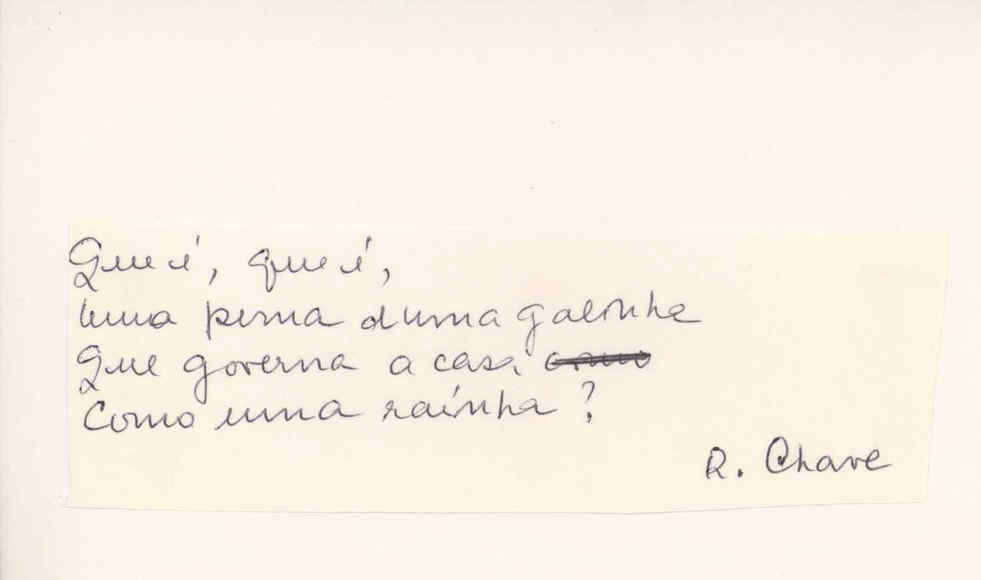 Que é, que é,
Uma perna duma galinha
Que governa a casa
Como uma rainha?
R. Chave